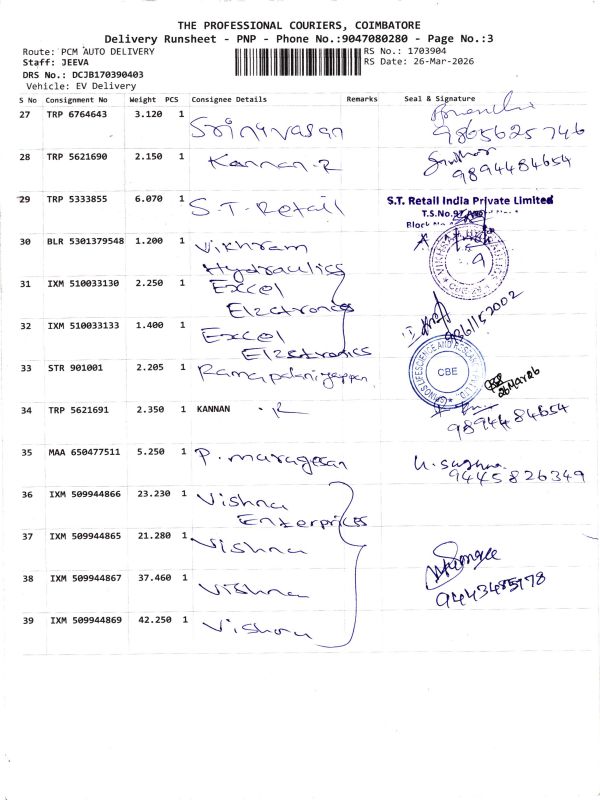 THE PROFESSIONAL COURIERS, COIMBATORE
Delivery Runsheet - PNP - Phone No.:9047080280 - Page No.:3
Route: PCM AUTO DELIVERY
RS No.: 1703904
Staff: JEEVA
RS Date: 26-Mar-2026
DRS No.: DCJB170390403
Vehicle: EV Delivery
S No Consignment No Weight PCS Consignee Details Remarks Seal & Signature
27 TRP 6764643 3.120 1 Srinivasan
9865625746
28 TRP 5621690 2.150 1 Kannan.R
9894484654
29 TRP 5333855 6.070 1 S.T. Retail S.T. Retail India Private Limited
T.S.No.
Block No
30 BLR 5301379548 1.200 1 Vikhram
Hydraulics
31 IXM 510033130 2.250 1 Excel
Elzctronics
32 IXM 510033133 1.400 1 Excel
Elzctronics
CBE
33 STR 901001 2.205 1 Ramapalaniyappan
26 Mar 26
34 TRP 5621691 2.350 1 KANNAN . R
9894484654
35 MAA 650477511 5.250 1 P. murugesan
9445826349
36 IXM 509944866 23.230 1 Vishnu
Enterprices
37 IXM 509944865 21.280 1 Vishnu
38 IXM 509944867 37.460 1 Vishnu
9443485178
39 IXM 509944869 42.250 1 Vishnu